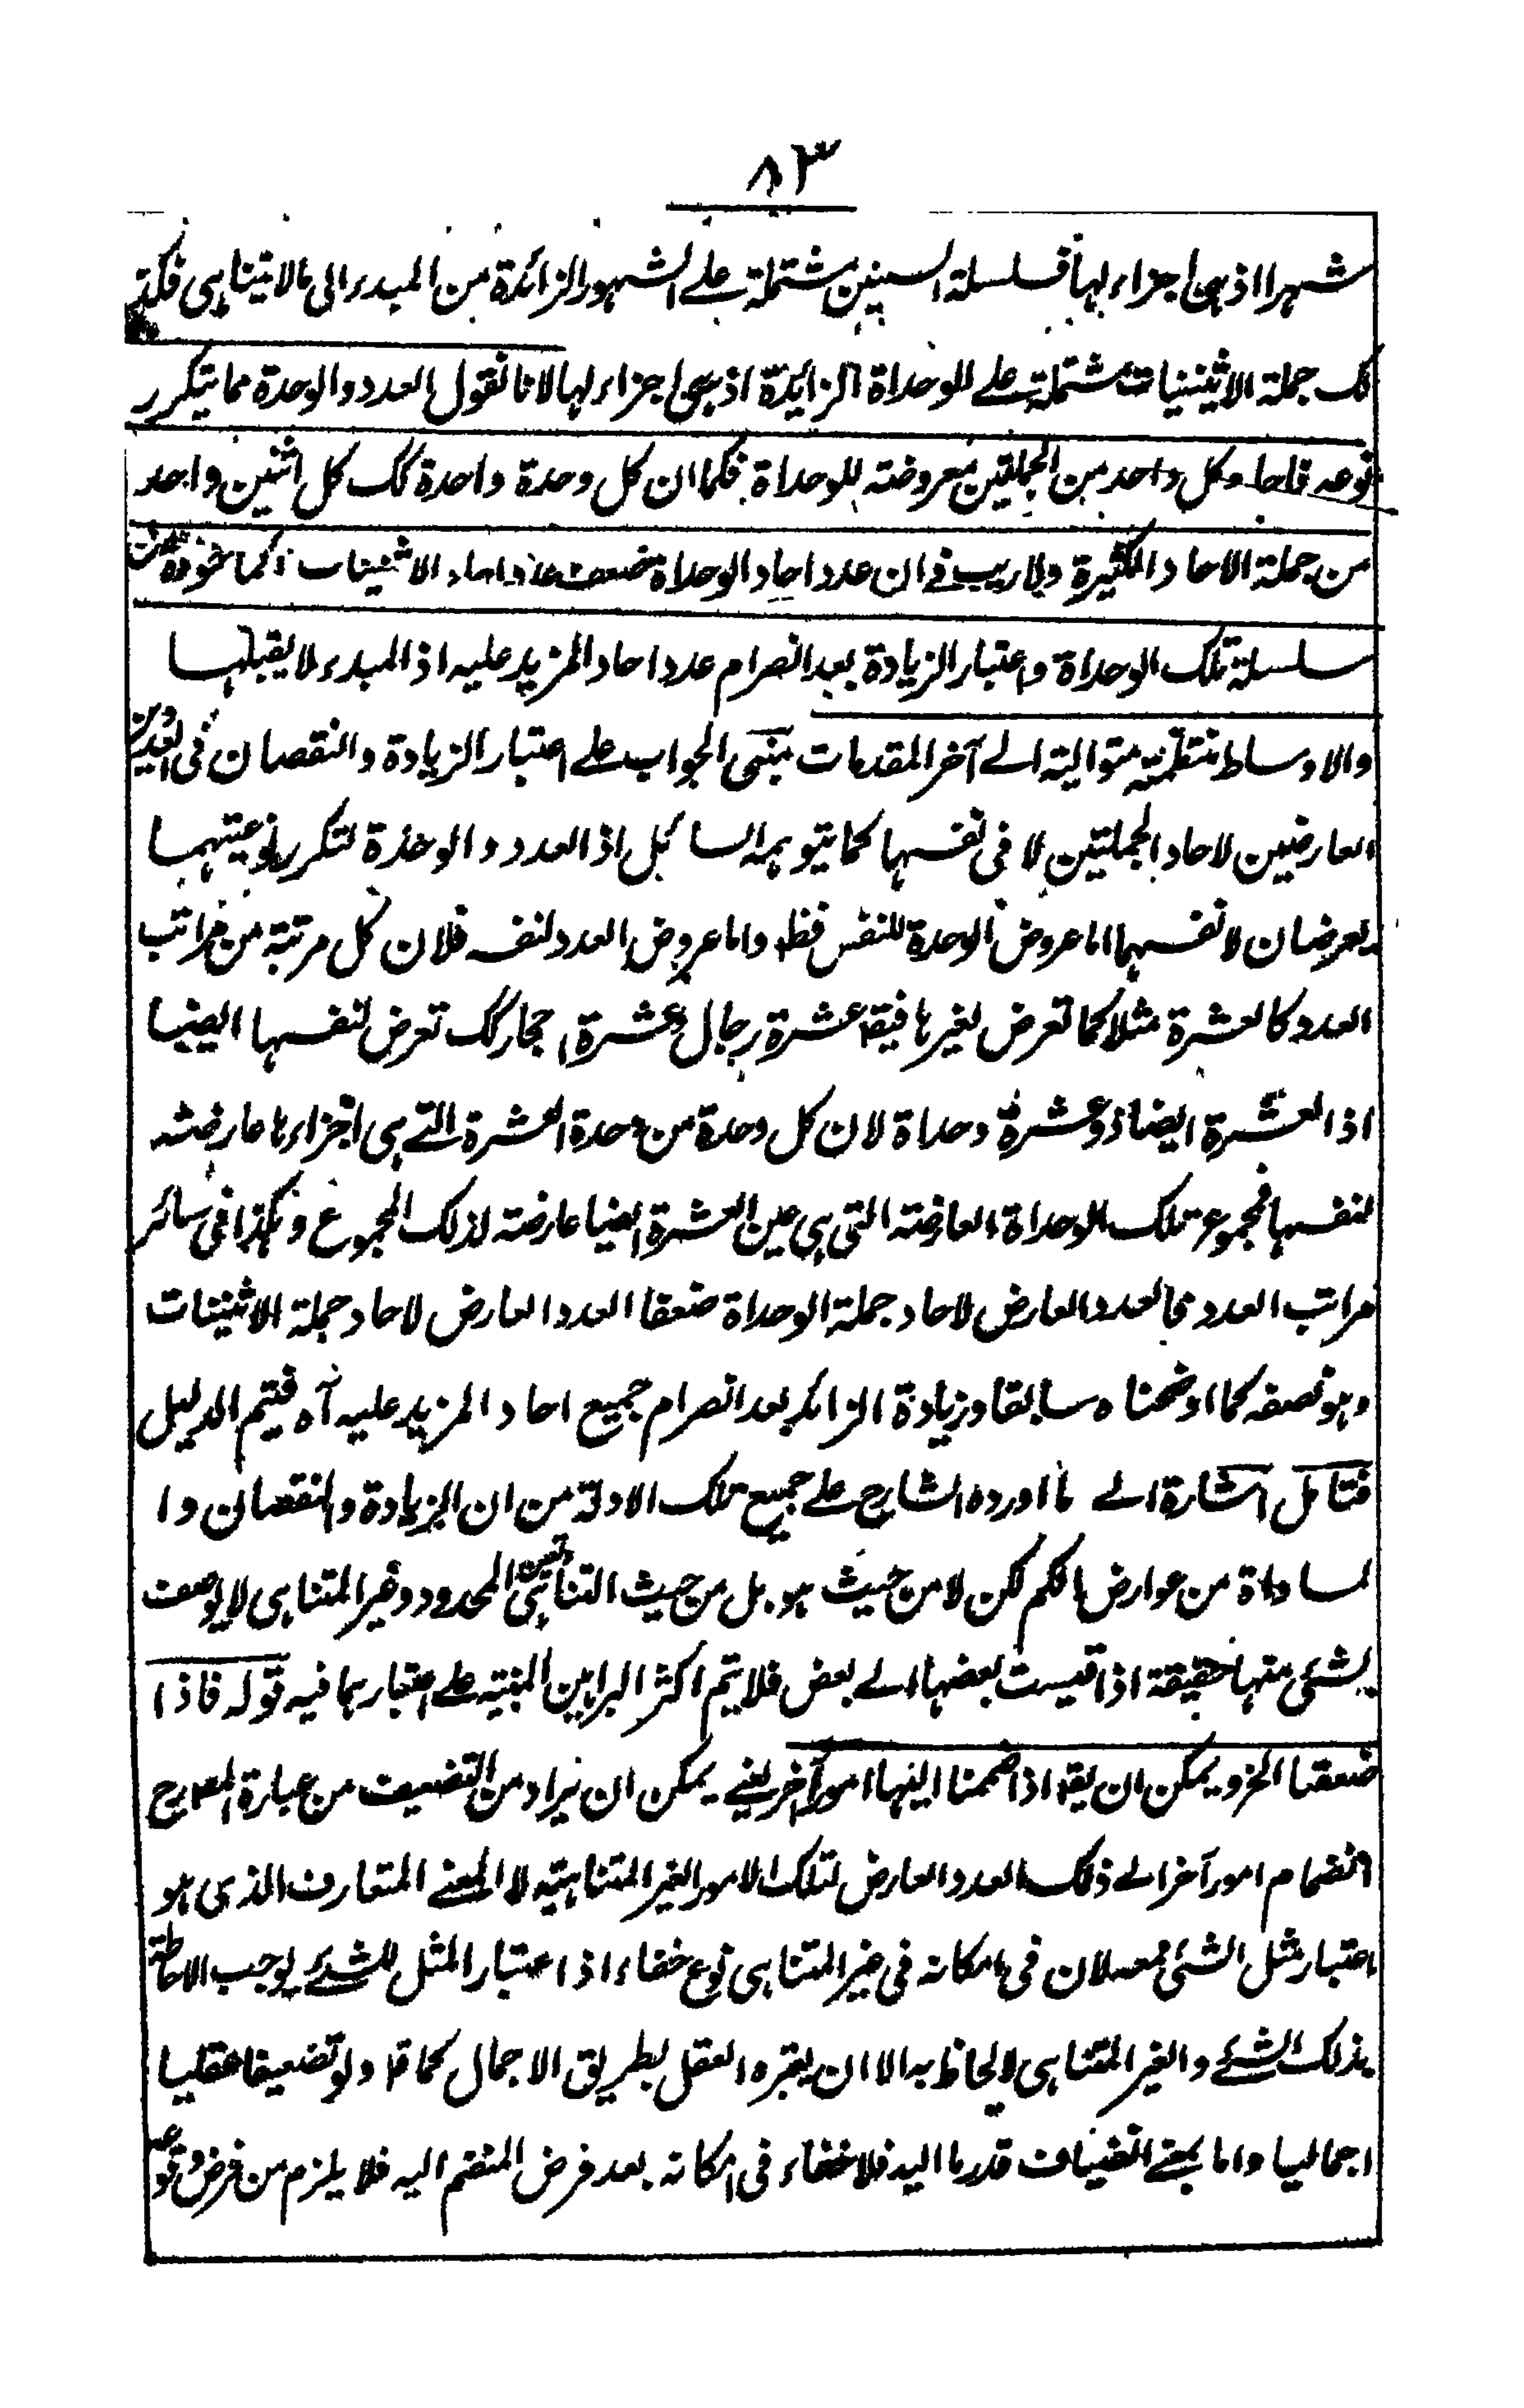 ٨٣
شهرا اذ هى اجزاء لها فسلسلة السنين مشتملة على الشهور الزائدة من المبدء الى مالا يتناهى فكذ
لك جملة الاثنينيات مشتملة على للوحداة الزائدة اذ هى اجزاء لها لانا نقول العدد والوحدة مما يتكرر
نوعه وكل واحد من الجملتين معروضة للوحداة فكما ان كل وحدة واحدة كك كل اثنين واحد
من جملة الاحاد الكثيرة ولا ريب فى ان عدد احاد الوحداة ضعف عدد احاد الاثنينات
سلسلة تلك الوحداة واعتبار الزيادة بعد انصرام عدد احاد المزيد عليه اذ المبدء لا يقبلها
والاوساط منتظمة متوالية الى آخر المقدمات مبنى الجواب على اعتبار الزيادة والنقصان فى العددين
العارضين لاحاد الجملتين لا فى نفسها كما يتوهمه السائل اذ العدد والوحدة لتكرر نوعيتهما
يعرضان لانفسهما اما عروض الوحدة للنفس فظ واما عروض العدد لنفسه فلان كل مرتبة من مراتب
العدد كالعشرة مثلا كما تعرض لغيرها فيقا عشرة رجال وعشرة احجار كك تعرض لنفسها ايضا
اذ العشرة ايضا ذو عشرة وحداة لان كل وحدة من وحدة العشرة التى هى اجزاءها عارضة
لنفسها فمجموع تلك الوحداة العارضة التى هى عين العشرة ايضا عارضة لذلك المجموع وهكذا فى سائر
مراتب العدد فالعدد العارض لاحاد جملة الوحداة ضعفا العدد العارض لاحاد جملة الاثنينات
وهو نصفه كما اوضحناه سابقا وزيادة الزائد بعد انصرام جميع احاد المزيد عليه آه فيتم الدليل
فتامل اشارة الى ما اورده الشارح على جميع تلك الادلة من ان الزيادة والنقصان وا
لمساواة من عوارض الكم لكن لا من حيث هو بل من حيث التناهى المحدود وغير المتناهى لا يوصف
بشئ منها حقيقة اذا قيست بعضها الى بعض فلا يتم اكثر البراهين المبنية على اعتبارهما فيه قوله فاذا
ضعفنا الخ ويمكن ان يقا اذا ضممنا اليها امورا آخر يعنى يمكن ان يراد من التضعيف من عبارة المصرح
انضمام امور آخر الى ذلك العدد العارض لتلك الامور الغير المتناهية لا المعنى المتعارف الذى هو
اعتبار مثل الشئ معه لان فى امكانه فى غير المتناهى نوع خفاء اذ اعتبار المثل للشئ يوجب الاحاطة
بذلك الشئ والغير المتناهى لا يحاط به الا ان يعتبره العقل بطريق الاجمال كما قا ولو تضعيفا عقليا
اجماليا واما بمعنى انضياف قدر ما اليه فلا خفاء فى امكانه بعد فرض المنضم اليه فلا يلزم من فرض وقوعه